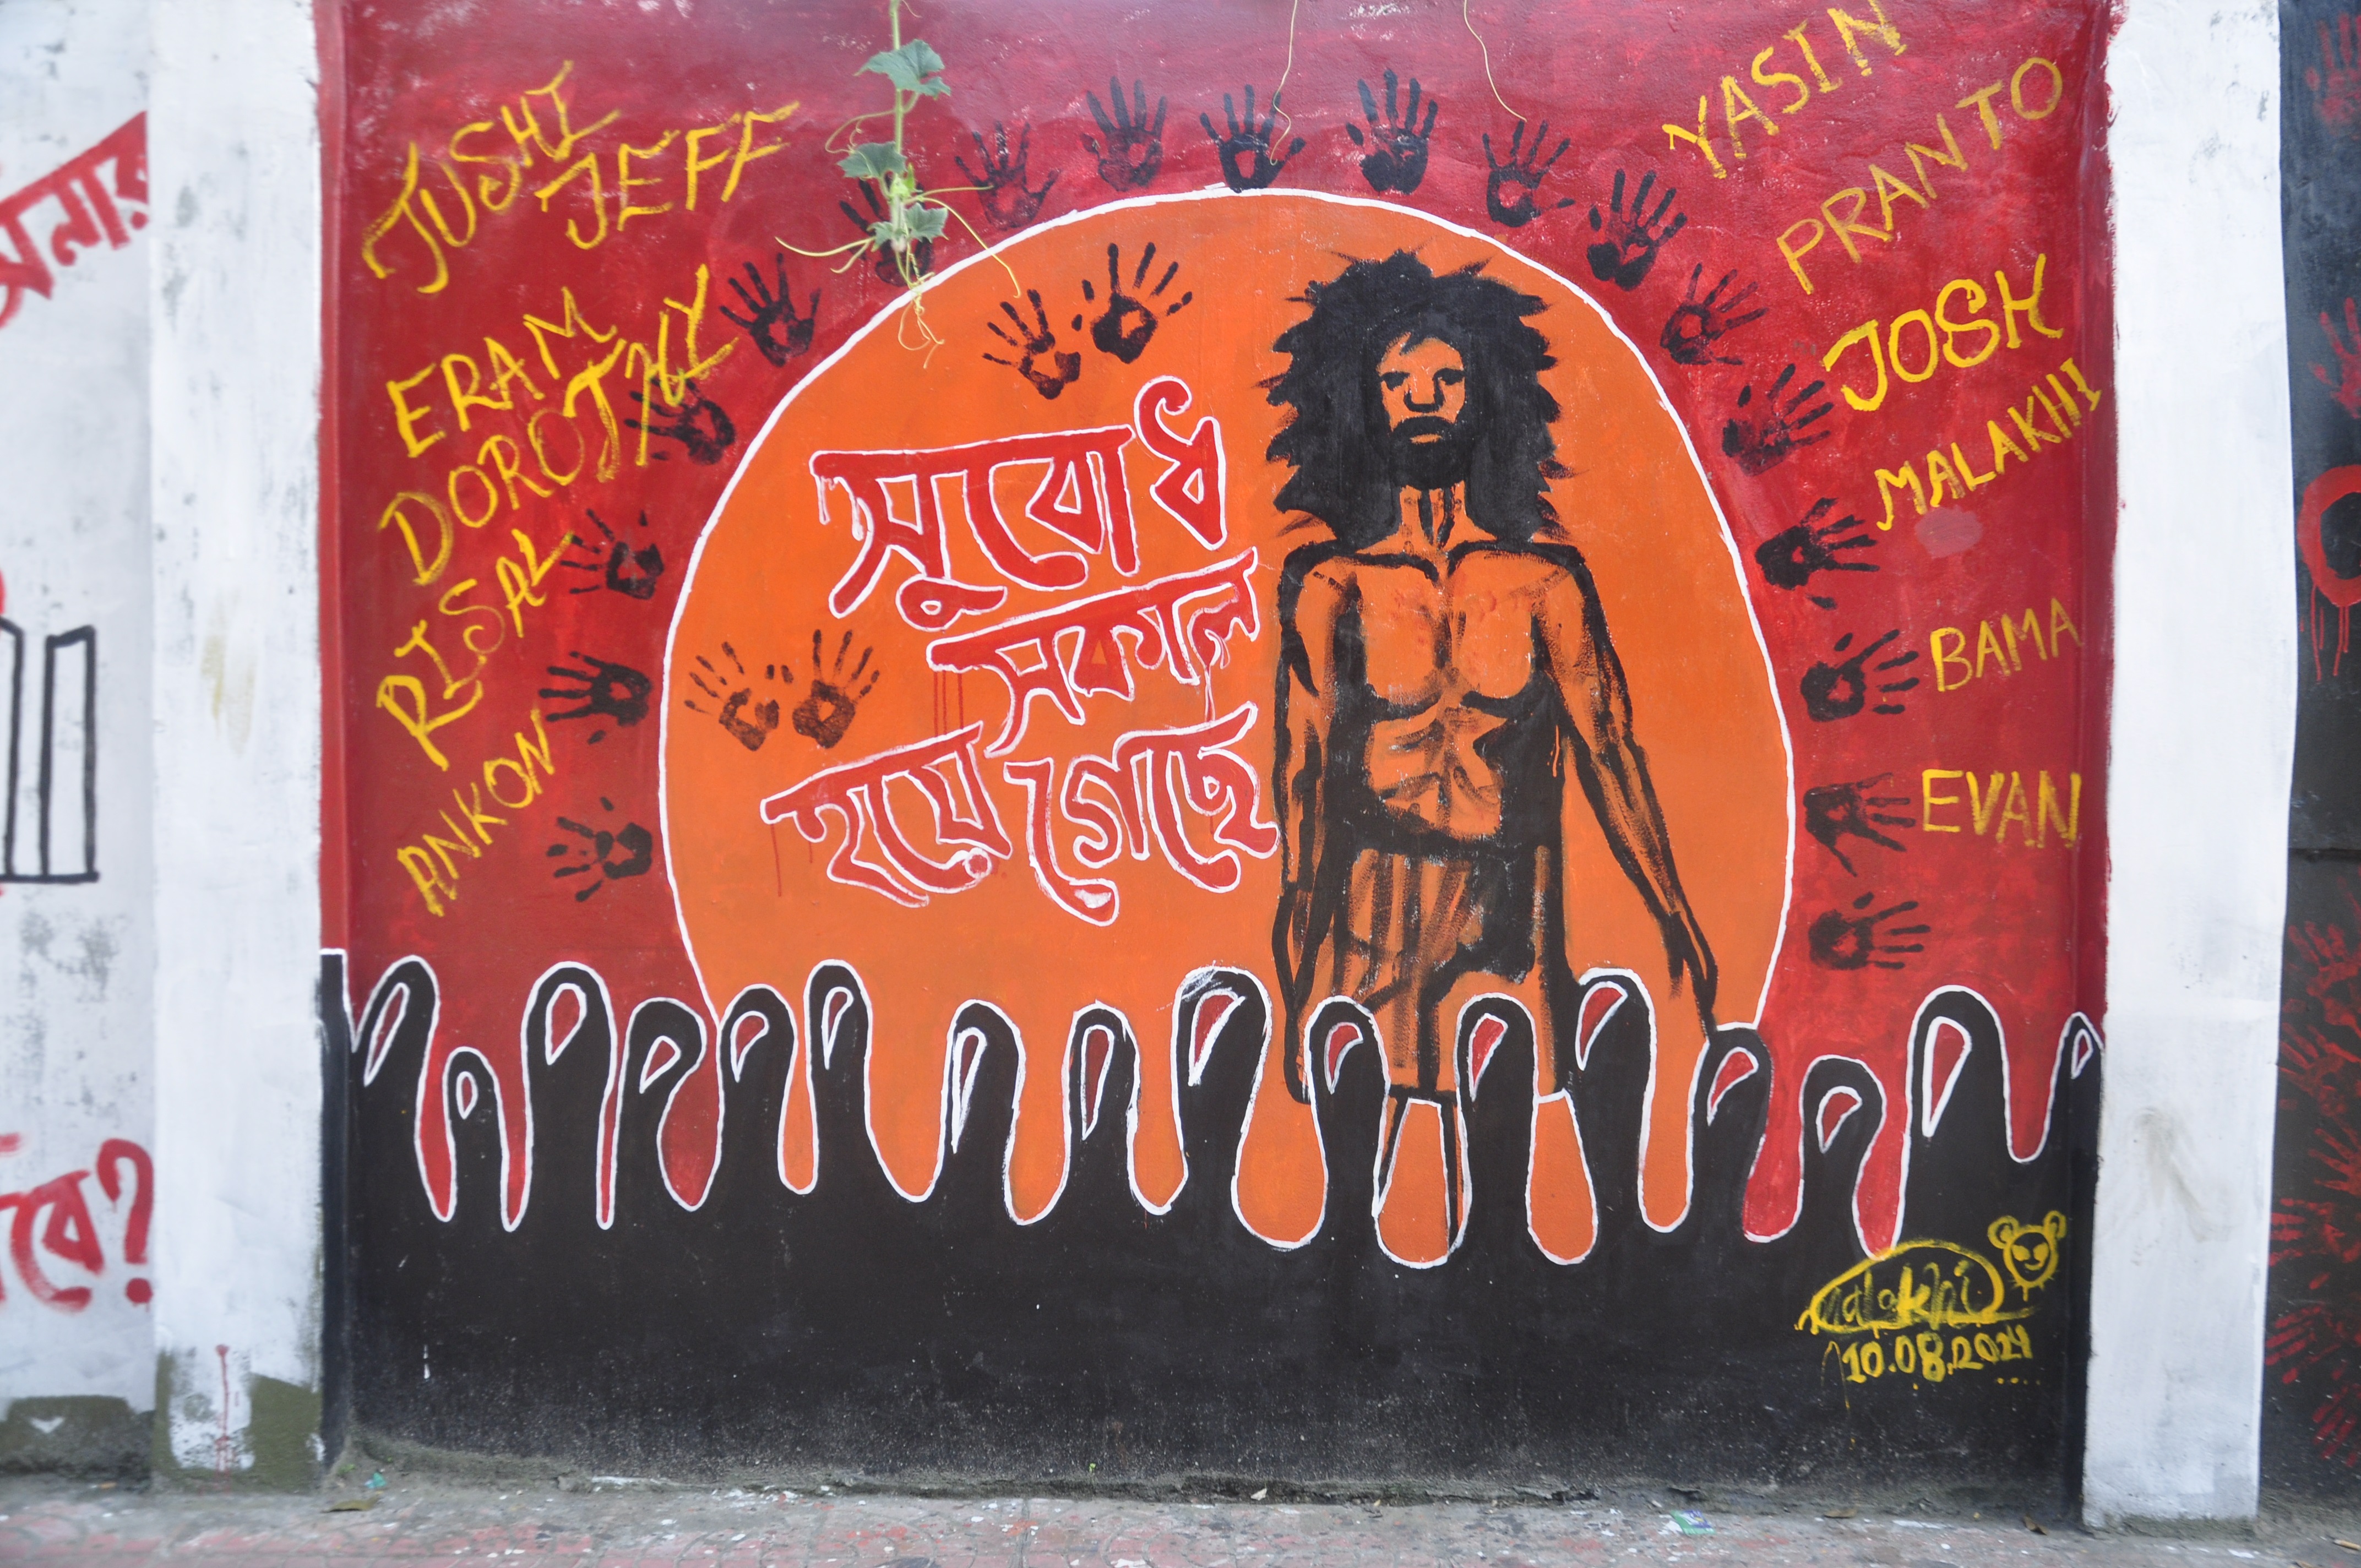 JUSHI
JEFF
ERAM
DOROTHY
RISAL
ANKON
সুবোধ
সকাল
হয়ে গেছে
YASIN
PRANTO
JOSH
MALAKHI
BAMA
EVAN
Malakhi
10.08.2024